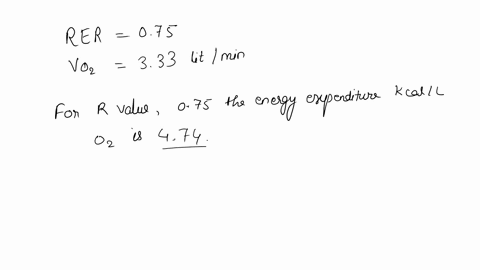 RER = 0.75
VO₂ = 3.33 lit/min
For R value, 0.75 the energy expenditure Kcal/L
O₂ is 4.74.